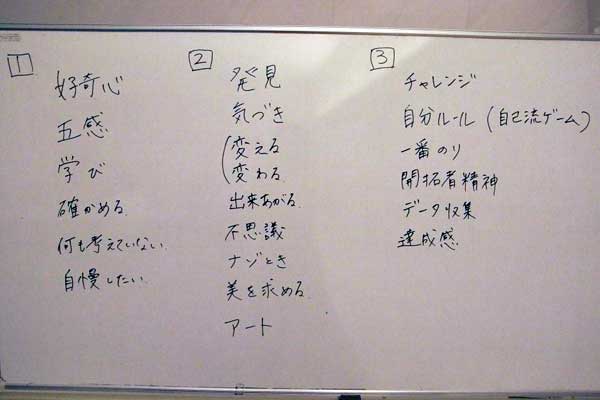 1
好奇心
五感
学び
確かめる
何も考えていない
自慢したい
2
発見
気づき
(変える
変わる
出来あがる
不思議
ナゾとき
美を求める
アート
3
チャレンジ
自分ルール (自己流ゲーム)
一番のり
開拓者精神
データ収集
達成感